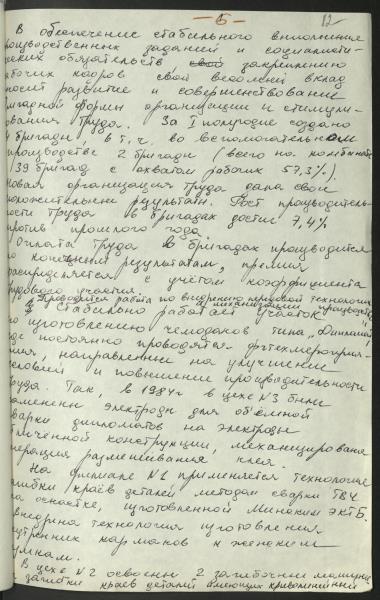 - 6 -
12
В обеспечение стабильного выполнения
роизводственных заданий и социалисти-
ческих обязательств, закреплению
абочих кадров свой весомый вклад
носит развитие и совершенствование
ригадной формы организации и стимули-
ования труда. За I полугодие создано
4 бригады в т.ч. во вспомогательном
производстве 2 бригады (всего на комбинате
139 бригад с охватом рабочих 57,3%).
Новая организация труда дала свои
положительные результаты. Рост производитель-
ности труда в бригадах достиг 7,4%
против прошлого года.
Оплата труда в бригадах производится
по конечным результатам, премия
распределяется с учётом коэффициента
трудового участия.
Проводится работа по внедрению передовой технологии
и механизации производства.
Стабильно работает участок
по изготовлению чемоданов типа „Дипломат",
где постоянно проводятся оргтехмероприя-
тия, направленные на улучшение
условий и повышение производительности
труда. Так, в 1984г в цехе №3 были
заменены электроды для объёмной
сварки дипломатов на электроды
облегчённой конструкции, механизирована
операция размешивания клея.
На филиале №1 применяется технология
загибки краёв деталей методом сварки ТВЧ
на оснастке, изготовленной Минским ЭКТБ.
Внедрена технология изготовления
внутренних карманов к женским
сумкам.
В цехе №2 освоены 2 загибочные машины
загибки краёв деталей имеющих криволинейный